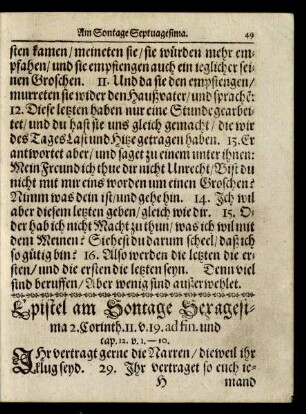 Am Sontage Septuagesima. 49
sten kamen/ meineten sie/ sie würden mehr em-
pfahen/ und sie empfiengen auch ein ieglicher sei-
nen Groschen. 11. Und da sie den empfiengen/
murreten sie wider den Haußvater/ und sprachē:
12. Diese letzten haben nur eine Stunde gearbei-
tet/ und du hast sie uns gleich gemacht/ die wir
des Tages Last und Hitze getragen haben. 13. Er
antwortet aber/ und saget zu einem unter ihnen:
Mein Freund ich thue dir nicht Unrecht/ Bist du
nicht mit mir eins worden um einen Groschen?
Nimm was dein ist/ und gehe hin. 14. Jch wil
aber diesem letzten geben/ gleich wie dir. 15. O-
der hab ich nicht Macht zu thun/ was ich wil mit
dem Meinen? Siehest du darum scheel/ daß ich
so gütig bin? 16. Also werden die letzten die er-
sten/ und die ersten die letzten seyn. Denn viel
sind beruffen/ Aber wenig sind außerwehlet.
Epistel am Sontage Sexagesi-
ma 2. Corinth. 11. v. 19. ad fin. und
cap. 12. v. 1.—10.
JHr vertragt gerne die Narren/ dieweil ihr
klug seyd. 29. Jhr vertraget so euch ie-
H mand